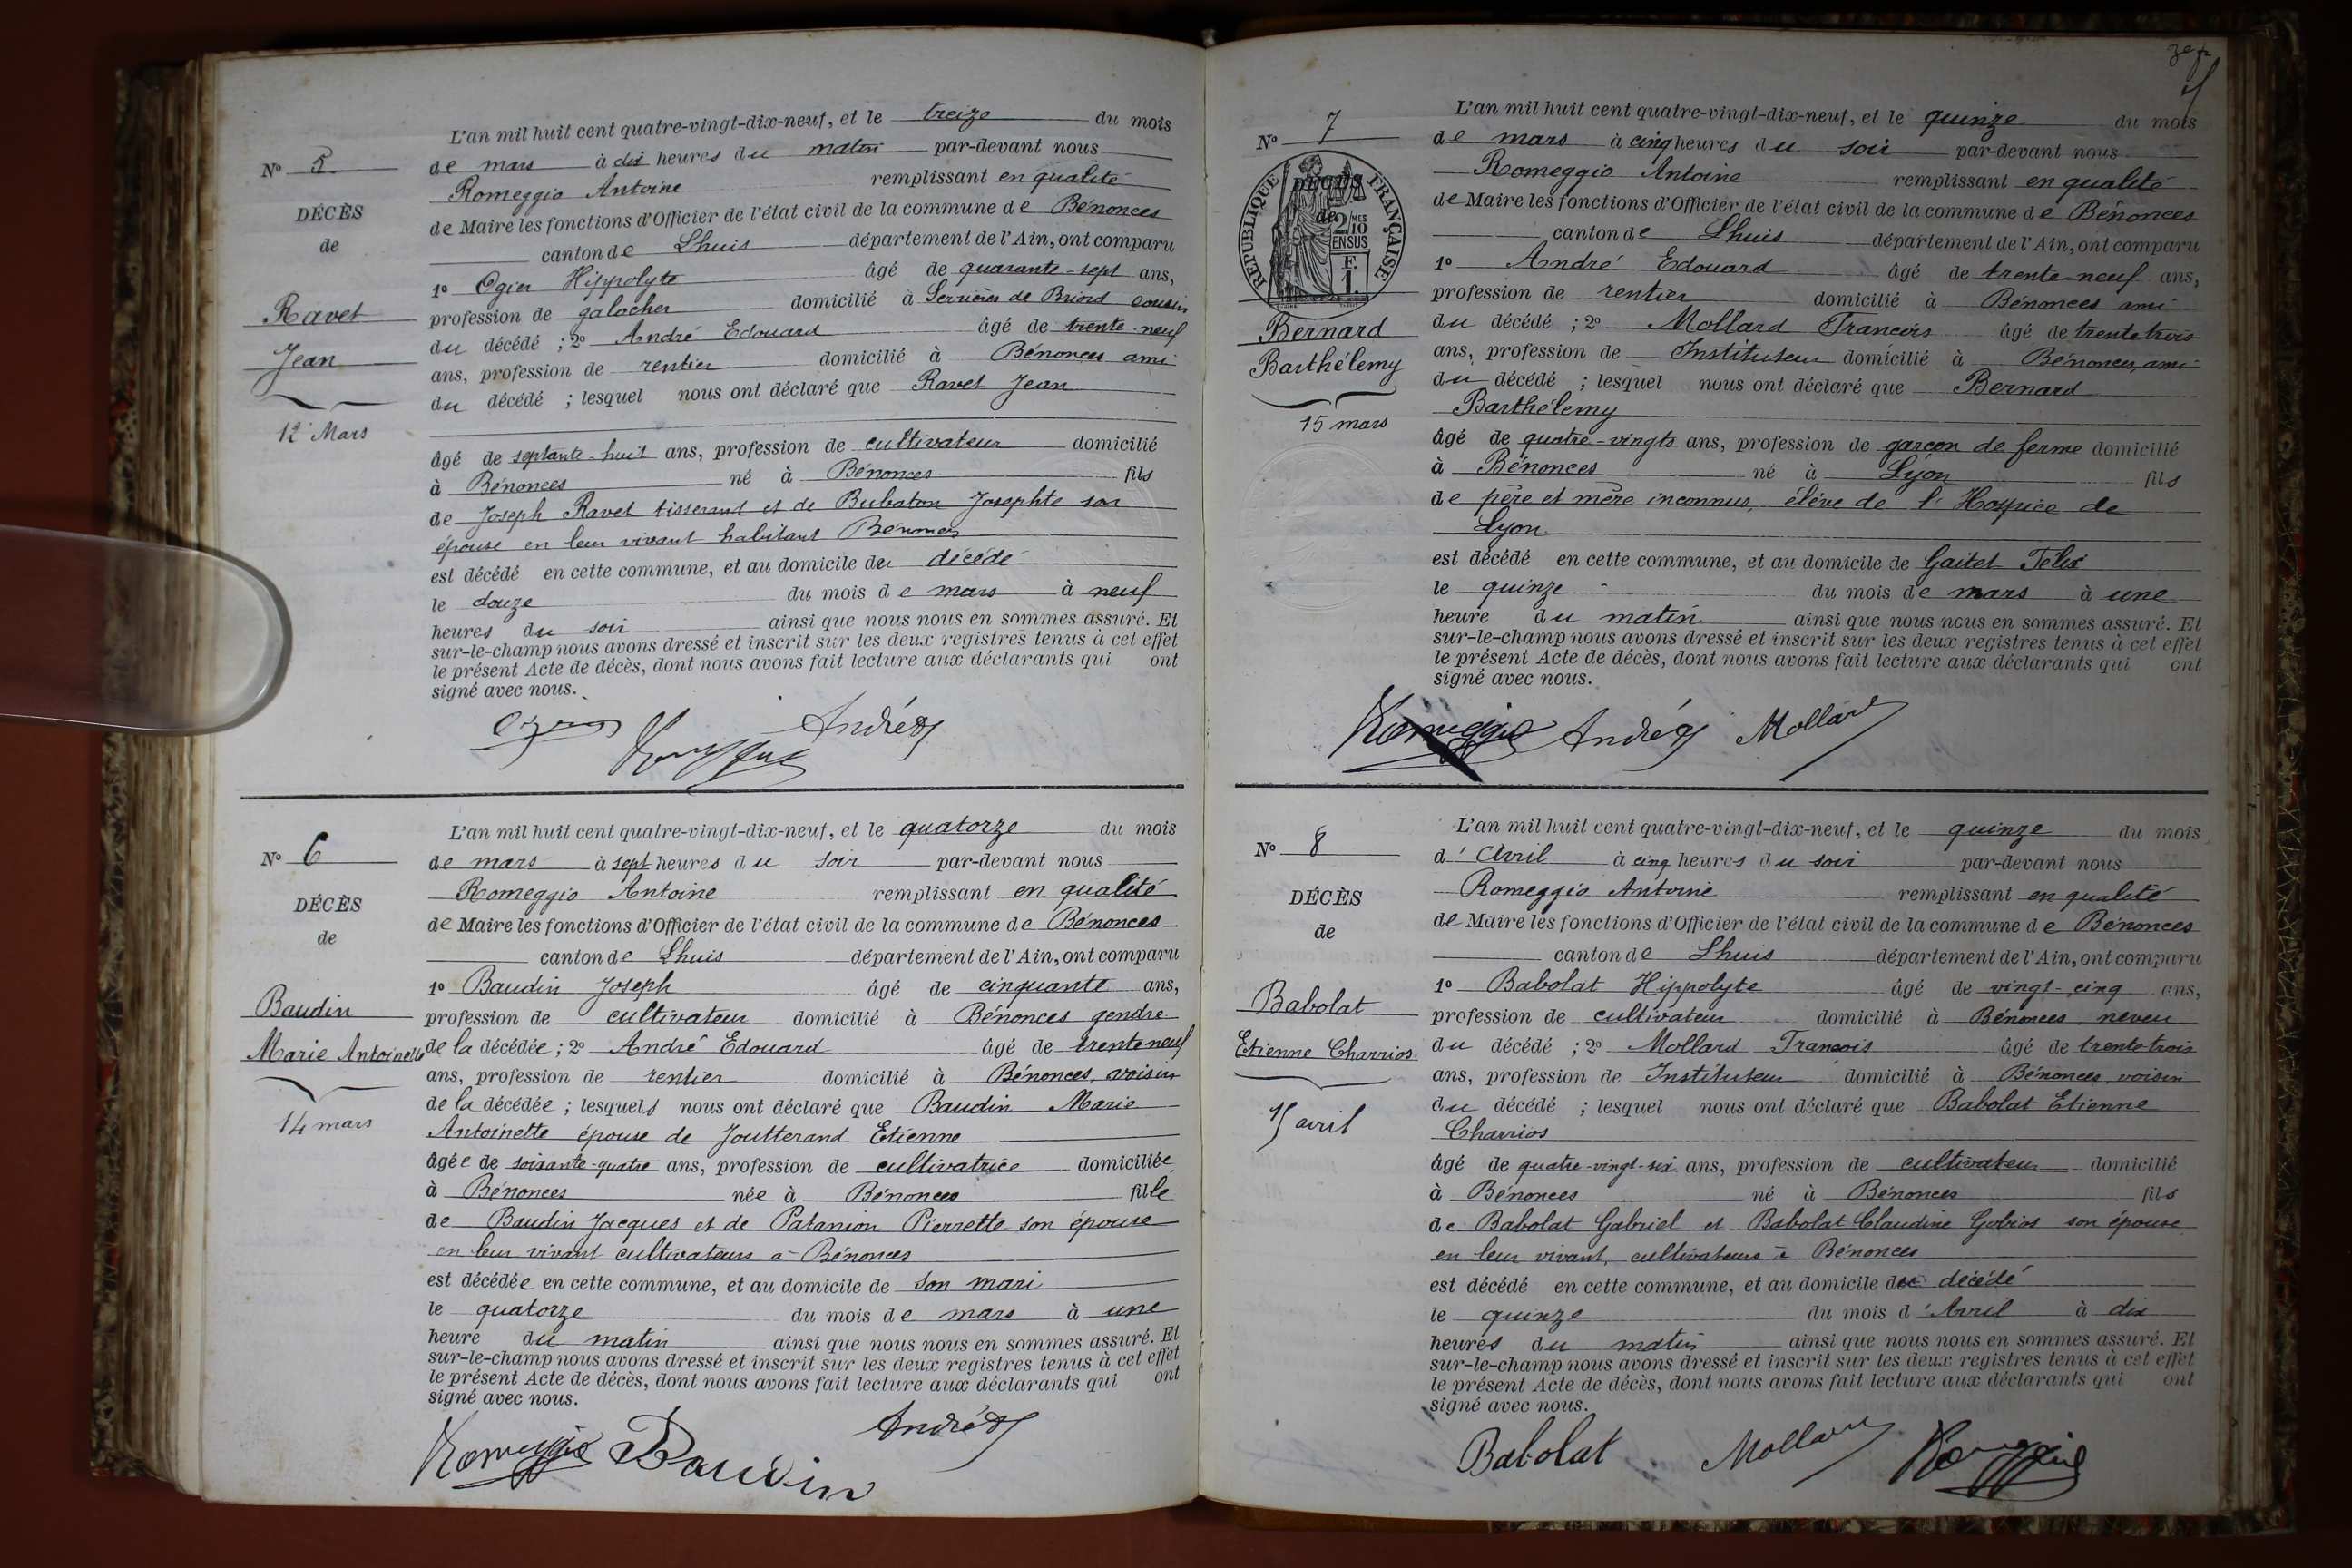 N° 5
DÉCÈS
de
Ravet
Jean
12 Mars
L'an mil huit cent quatre-vingt-dix-neuf, et le treize du mois
de mars à dix heures du matin par-devant nous
Romeggio Antoine remplissant en qualité
de Maire les fonctions d'Officier de l'état civil de la commune de Bénonces
canton de Lhuis département de l'Ain, ont comparu
1° Ogier Hippolyte âgé de quarante-sept ans,
profession de galocher domicilié à Serrières de Briord cousin
du décédé ; 2° André Edouard âgé de trente-neuf
ans, profession de rentier domicilié à Bénonces ami
du décédé ; lesquel nous ont déclaré que Ravet Jean
âgé de septante-huit ans, profession de cultivateur domicilié
à Bénonces né à Bénonces fils
de Joseph Ravet tisserand et de Bubaton Josephte son
épouse en leur vivant habitant Bénonces
est décédé en cette commune, et au domicile du décédé
le douze du mois de mars à neuf
heures du soir ainsi que nous nous en sommes assuré. Et
sur-le-champ nous avons dressé et inscrit sur les deux registres tenus à cet effet
le présent Acte de décès, dont nous avons fait lecture aux déclarants qui ont
signé avec nous.
André
N° 6
DÉCÈS
de
Baudin
Marie Antoinette
14 mars
L'an mil huit cent quatre-vingt-dix-neuf, et le quatorze du mois
de mars à sept heures du soir par-devant nous
Romeggio Antoine remplissant en qualité
de Maire les fonctions d'Officier de l'état civil de la commune de Bénonces
canton de Lhuis département de l'Ain, ont comparu
1° Baudin Joseph âgé de cinquante ans,
profession de cultivateur domicilié à Bénonces gendre
de la décédée ; 2° André Edouard âgé de trente neuf
ans, profession de rentier domicilié à Bénonces, voisin
de la décédée ; lesquels nous ont déclaré que Baudin Marie
Antoinette épouse de Joutterand Etienne
âgée de soixante-quatre ans, profession de cultivatrice domiciliée
à Bénonces née à Bénonces fille
de Baudin Jacques et de Patanion Pierrette son épouse
en leur vivant cultivateurs à Bénonces
est décédée en cette commune, et au domicile de son mari
le quatorze du mois de mars à une
heure du matin ainsi que nous nous en sommes assuré. Et
sur-le-champ nous avons dressé et inscrit sur les deux registres tenus à cet effet
le présent Acte de décès, dont nous avons fait lecture aux déclarants qui ont
signé avec nous.
Romeggio Baudin André
N° 7
RÉPUBLIQUE FRANÇAISE
DÉCÈS
de
2/10
EN SUS
F.
1.
Bernard
Barthélemy
15 mars
L'an mil huit cent quatre-vingt-dix-neuf, et le quinze du mois
de mars à cinq heures du soir par-devant nous
Romeggio Antoine remplissant en qualité
de Maire les fonctions d'Officier de l'état civil de la commune de Bénonces
canton de Lhuis département de l'Ain, ont comparu
1° André Edouard âgé de trente neuf ans,
profession de rentier domicilié à Bénonces ami
du décédé ; 2° Mollard Francois âgé de trente trois
ans, profession de Instituteur domicilié à Bénonces, ami
du décédé ; lesquel nous ont déclaré que Bernard
Barthélemy
âgé de quatre-vingts ans, profession de garçon de ferme domicilié
à Bénonces né à Lyon fils
de père et mère inconnus, élève de l'Hospice de
Lyon.
est décédé en cette commune, et au domicile de Gaitet Felix
le quinze du mois de mars à une
heure du matin ainsi que nous nous en sommes assuré. Et
sur-le-champ nous avons dressé et inscrit sur les deux registres tenus à cet effet
le présent Acte de décès, dont nous avons fait lecture aux déclarants qui ont
signé avec nous.
Romeggio André Mollard
N° 8
DÉCÈS
de
Babolat
Etienne Charrios
15 avril
L'an mil huit cent quatre-vingt-dix-neuf, et le quinze du mois
d'Avril à cinq heures du soir par-devant nous
Romeggio Antoine remplissant en qualité
de Maire les fonctions d'Officier de l'état civil de la commune de Bénonces
canton de Lhuis département de l'Ain, ont comparu
1° Babolat Hippolyte âgé de vingt-cinq ans,
profession de cultivateur domicilié à Bénonces neveu
du décédé ; 2° Mollard Francois âgé de trente-trois
ans, profession de Instituteur domicilié à Bénonces, voisin
du décédé ; lesquel nous ont déclaré que Babolat Etienne
Charrios
âgé de quatre-vingt-six ans, profession de cultivateur domicilié
à Bénonces né à Bénonces fils
de Babolat Gabriel et Babolat Claudine Gobios son épouse
en leur vivant, cultivateurs à Bénonces
est décédé en cette commune, et au domicile du décédé
le quinze du mois d'Avril à dix
heures du matin ainsi que nous nous en sommes assuré. Et
sur-le-champ nous avons dressé et inscrit sur les deux registres tenus à cet effet
le présent Acte de décès, dont nous avons fait lecture aux déclarants qui ont
signé avec nous.
Babolat Mollard Romeggio